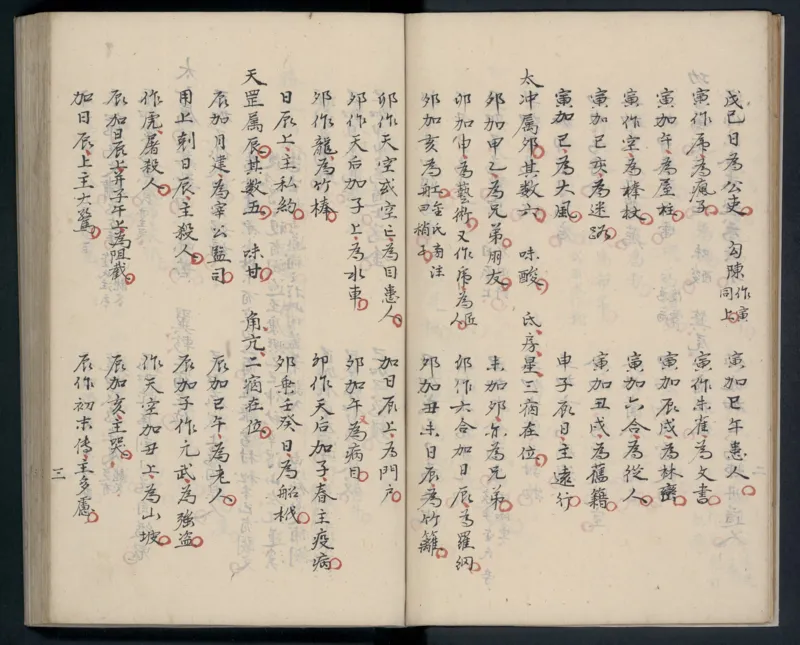 戊己日為公吏 勾陳作寅同上 寅加巳午患人
寅作虎為瘋子 寅作朱雀為文書
寅加午為屋柱 寅加辰戌為林
寅作空為棒杖 寅加六合為從人
寅加巳亥為迷路 寅加丑戌為舊籍
寅加巳為大風 申子辰日主遠行
太冲属夘其數六 味酸 氐房星三宿在位
夘加甲乙為兄弟朋友 未加夘亦為兄弟
夘加申為藝術又作虎為匠人 夘作六合加日辰為羅網
夘加亥為舡 夘加丑未日辰為竹籬
夘作天空或空亡為目患人 加日辰上為門戶
夘作天后加子上為水車 夘加午為病目
夘作龍為竹棒 夘作天后加子春主疫病
日辰上主私約 夘乘壬癸日為船栰
天罡属辰其數五 味甘 角亢二宿在位
辰加月建為宰公監司 辰加巳午為老人
用上剋日辰主殺人 辰加子作元武為強盜
作虎屠殺人 作天空加丑上為山坡
辰加日辰上并子午上為阻截 辰加亥主哭
加日辰上主大驚 辰作初末傳主多慮
三